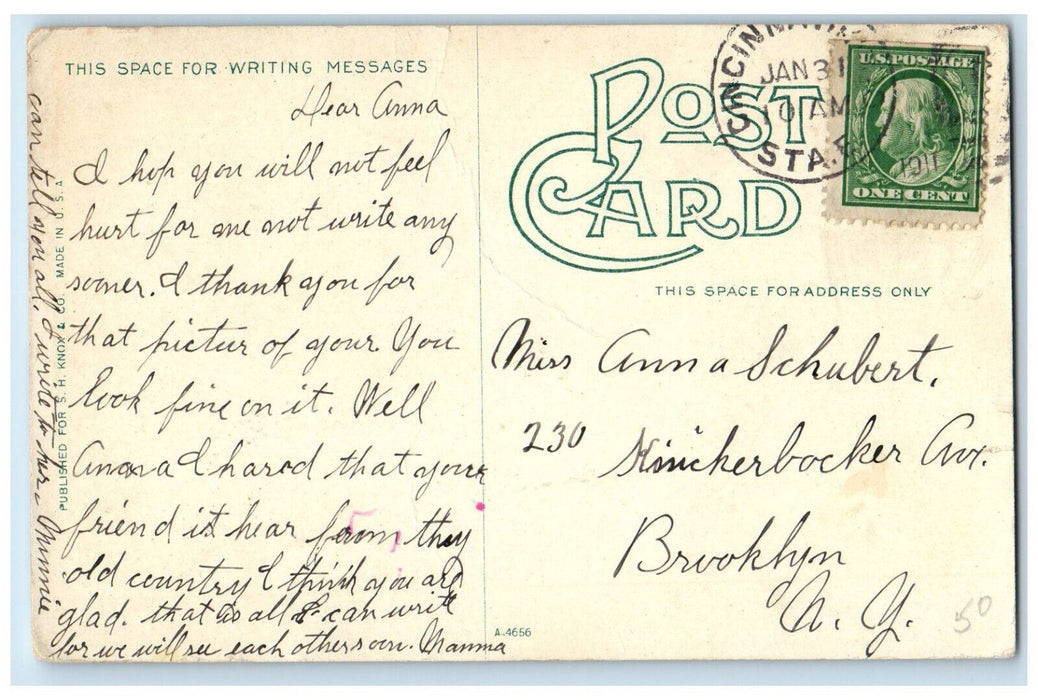 THIS SPACE FOR WRITING MESSAGES
Dear Anna
I hop you will not feel
hurt for me not write any
sooner. I thank you for
that pictur of your. You
look fine on it. Well
Anna I hared that your
friend is hear from they
old country I think you are
glad. that is all I can write
for we will see each other soon. Mamma
can tell you all, I write to her. Minnie
PUBLISHED FOR S. H. KNOX & CO. MADE IN U.S.A
A-4656
POST CARD
CINCINNATI
JAN 31
10 AM
1911
STA.
U.S. POSTAGE
ONE CENT
THIS SPACE FOR ADDRESS ONLY
Miss Anna Schubert.
230 Knickerbocker Av.
Brooklyn
N. Y.
50